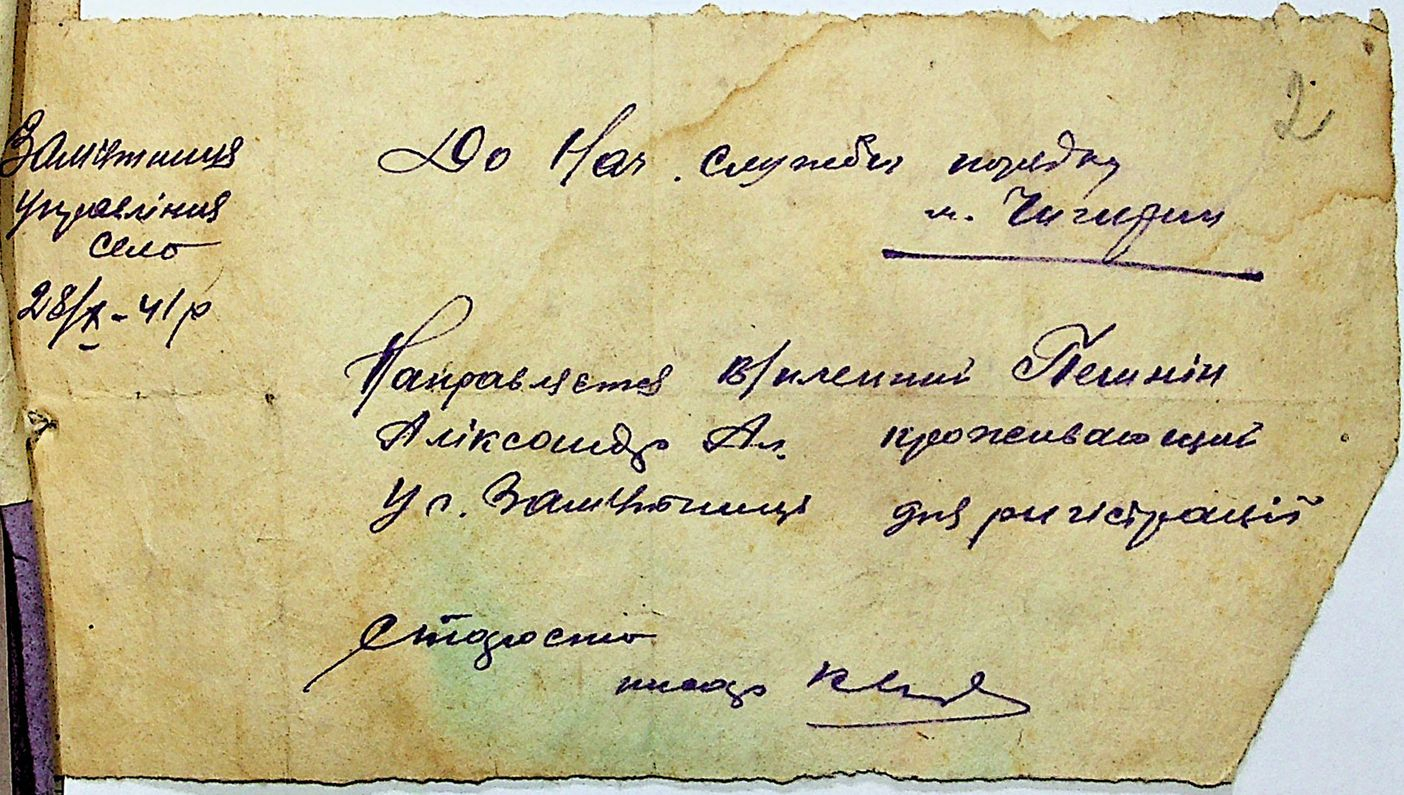 2
Замʼятниця
управління
село
28/X - 41 р
До Нач. служби порядку
м. Чигирин
Направляется в/пленний Пешнін
Аліксандр Ал. проживающий
У с. Замʼятниці для ригістрації
Староста
писар